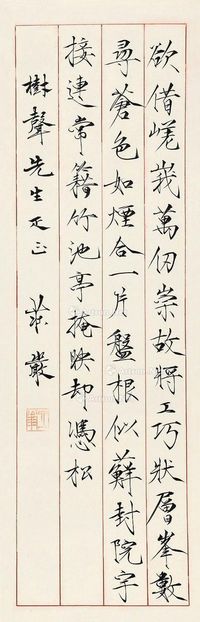 欲借嵯峩萬仞崇故將工巧狀層峯數
尋蒼色如煙合一片盤根似蘚封院宇
接連常籍竹池亭掩映却憑松
樹聲先生疋正
莊嚴